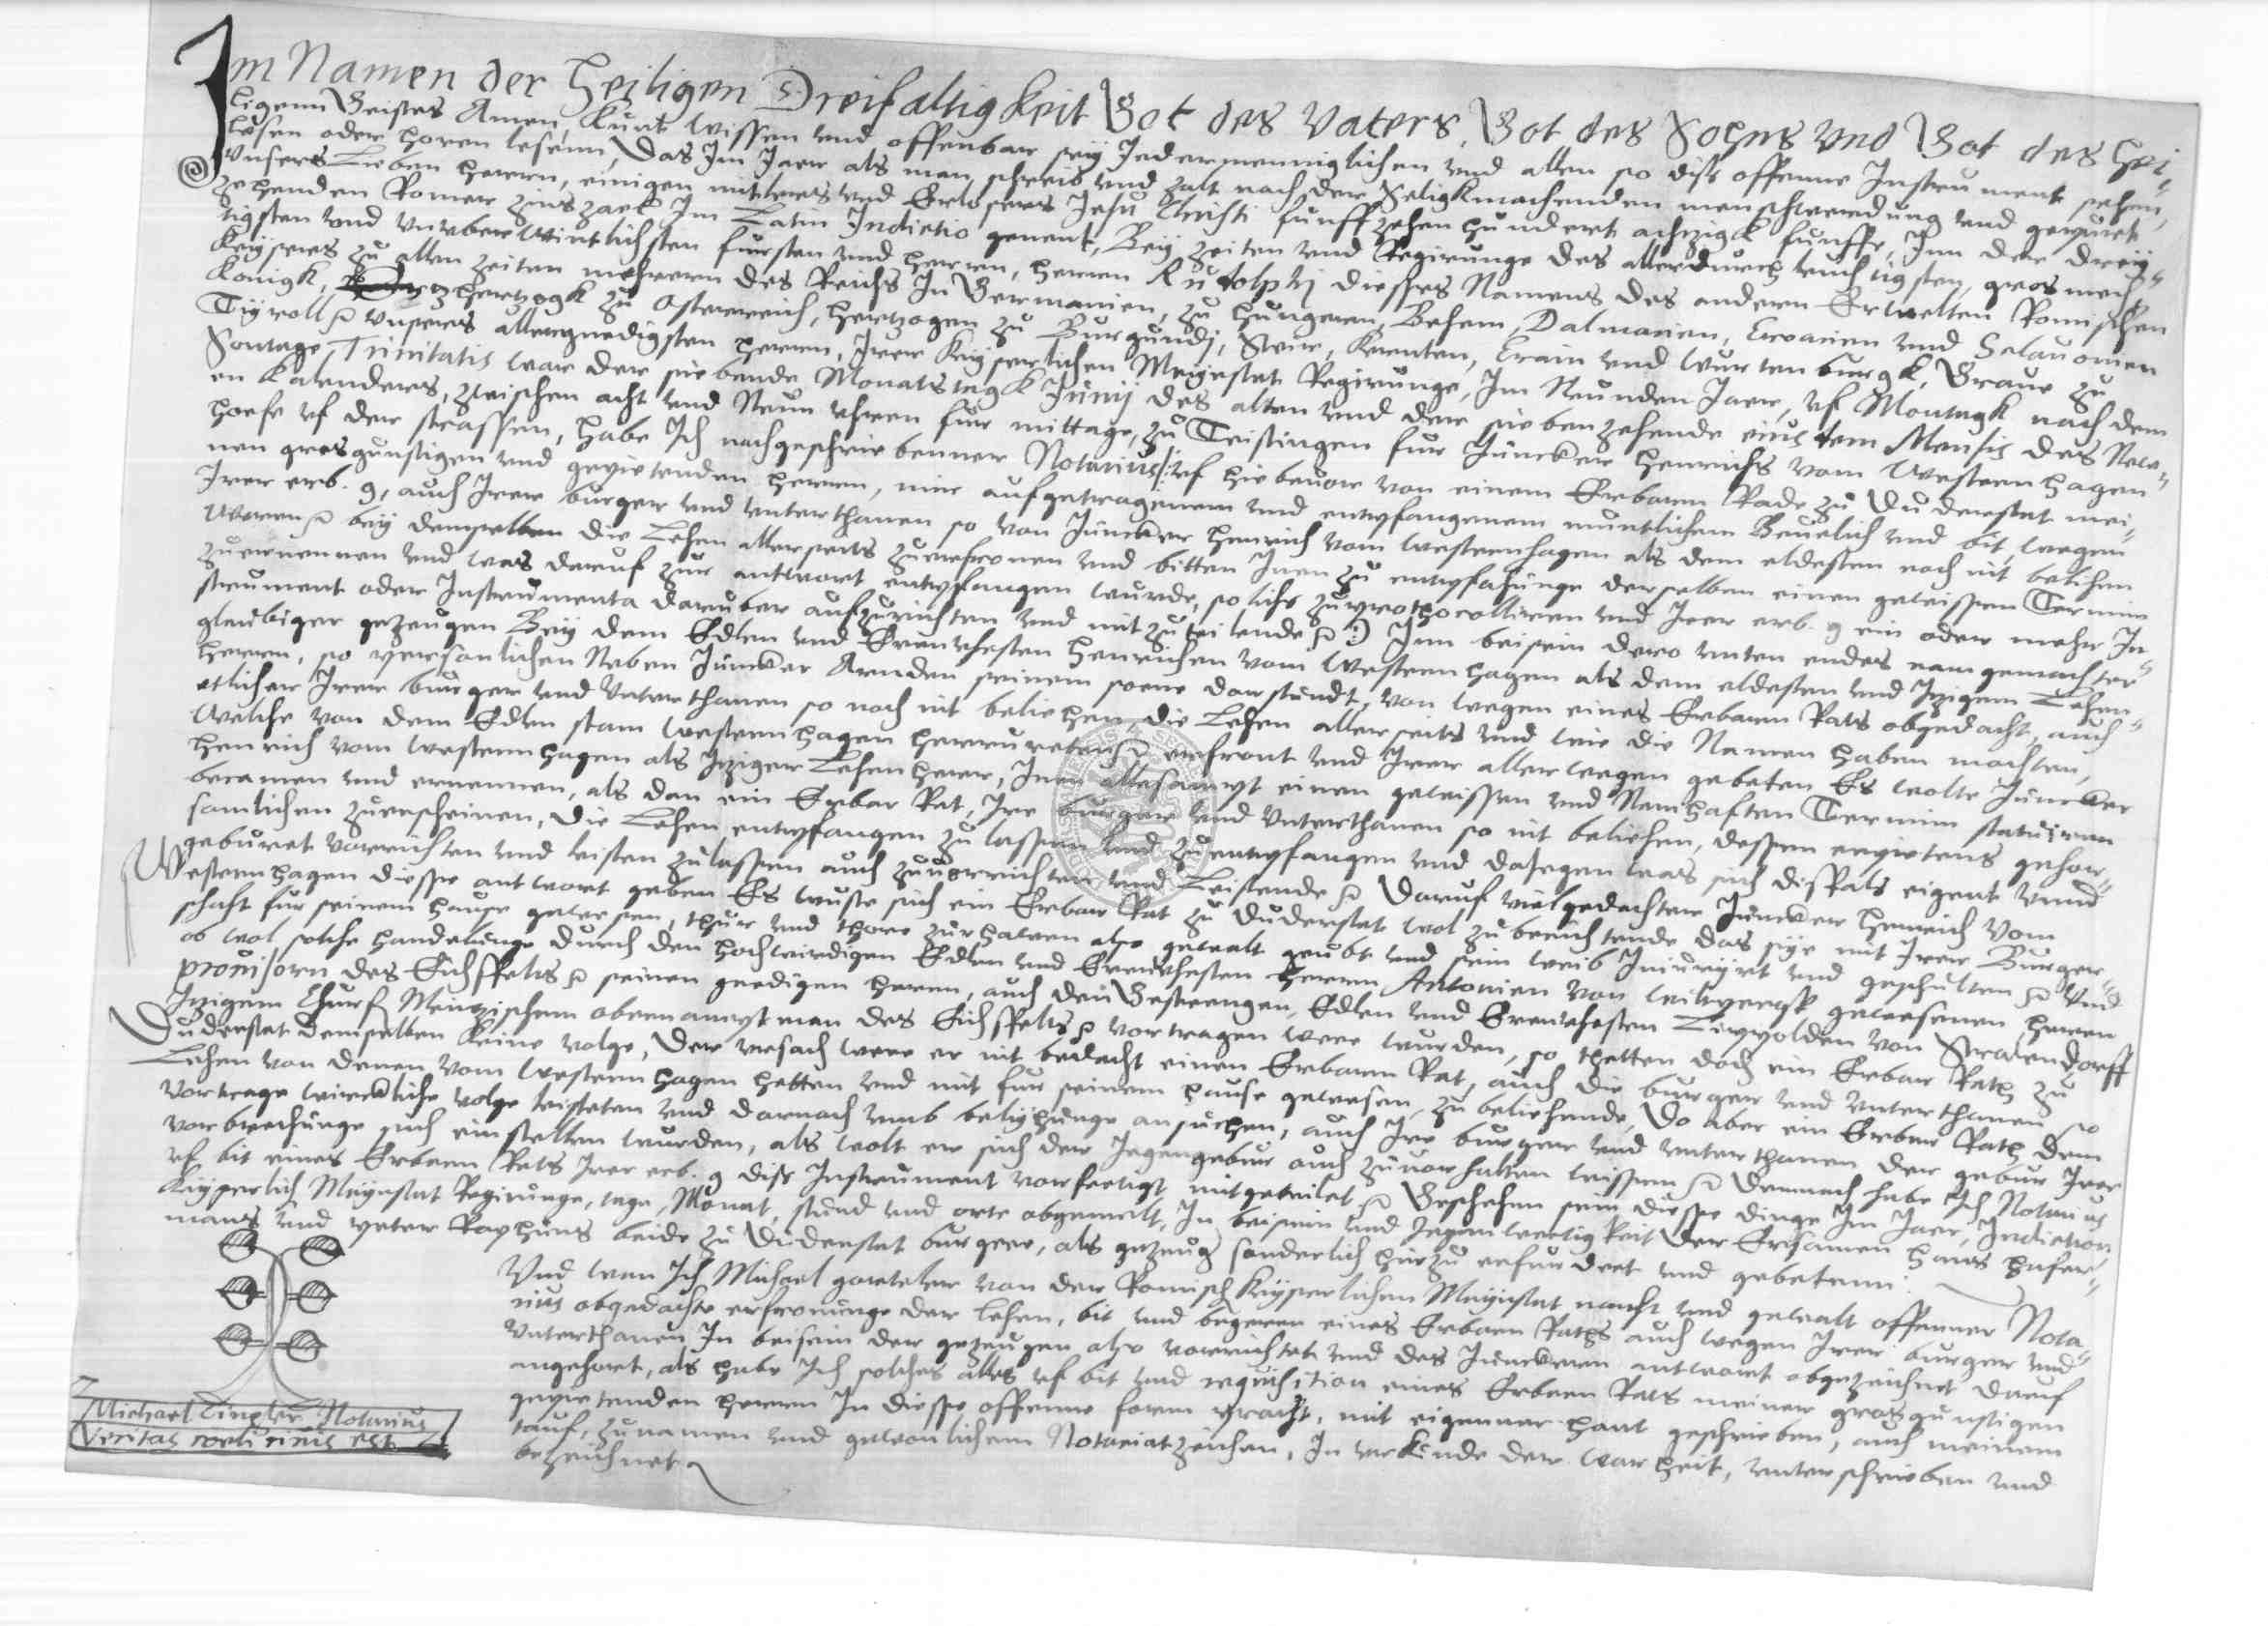 Im Namen der Heiligen Dreifaltigkeit Got des Vaters, Got des Sohns Vnd Got des Hei-
ligenn Geistes Amen, Kunt wissen vnd offenbar sey Jedermenniglichen vnd allen so diss offenne Instrument sehen,
lesen oder horen lesenn, Das Im Jaer als man schreib vnd zalt nach der Seligkmachenden menschwerdung vnd gepurt
Vnsers Lieben herrn, einigen mitlers vnd Erlosers Jesu Christi funffzehenhundert achzigk funffe, Inn der drey-
zehenden Romer zinszael Im Latin Indictio genent, Bey zeiten vnd Regirunge des allerdurchleuchtigsten, grosmech-
tigsten vnd vnuberwintlichsten fursten vnd herren, herren Rudolphj diesses Namens des andern Erwelten Romischen
Keysers zu allen zeiten mehrern des Reichs In Germanien, zu hungern, Behem, Dalmatien, Croatien vnd Sclauonien
Konigk, Ertzhertzogk zu Osterreich, hertzogen zu Burgundj, Steir, Kernten, Crain vnd Wurtenburgk, Graue zu
Tyroll vnsers allergnedigsten herren, Irer Keyserlichen Mayestat Regirunge, Im Neunden Jaer, vf Montagk nach dem
Sontage Trinitatis war der siebende Monatstagk Junij des alten vnd der siebenzehende eiusdem Mensis des Neu-
en Kalenders, zwischen acht vnd Neun vhren fur mittage, zu Teistingen fur Junckher Henrichs vom Westernhagen
hoefe vf der strassen, habe Ich nachgeschriebenner Notarius vf hiebeuor von einem Erbarn Rade zu Duderstat mei-
nen grosgunstigen vnd gepietenden herren, mir aufgetragenem vnd entpfangenem muntlichem Beuelich vnd bit, wegen
Irer erb. g, auch Irer burger vnd vnterthanen so von Juncker Henrich vom Westernhagen als dem eldesten noch nit belihen
Weren bey demselben die Lehen allerseits zuerfronen vnd bitten Inen zu entpfahunge derselben einen gewissen Termin
zuernennen vnd was daruf zur antwort entpfangen wurde, solichs zuprothocolliren vnd Irer erb. g ein oder mehr In-
strument oder Instrumenta daruber aufzurichten vnd mitzuteilende Inn beisein dero vnten endes namgemachter
glaubiger gezeugen Bey dem Edlen vnd Ernvhesten Henrichen vom Westernhagen als dem eldesten vnd Itzigem Lehen-
herrn, so personlichen Neben Juncker Arnden seinem soene dar stundt, von wegen eines Erbarn Rats obgedacht, auch
etlicher Irer burger vnd vnterthanen so noch nit beliehen, die Lehen allerseits vnd wie die Namen haben mochten,
Welche von dem Edlen stam Westernhagen herrureten erfront vnd Irer allerwegen gebeten Es wolte Juncker
Henrich vom Westernhagen als Itziger Lehenherr, Inen allesampt einen gewissen vnd Namhaften Termin statuiren
beramen vnd ernennen, als dan ein Erbar Rat, Ire burger vnd vnterthanen so nit beliehen, dessen erpietens gehor-
samlichen zuerscheinen, die Lehen entpfangen zu lassen vnd zuentpfangen vnd dajegen was sich disfals eigent vnnd
geburet vorrichten vnd leisten zulassen auch zuuorrichten vnd Leistende Daruf vielgedachter Juncker Henrich vom
Westernhagen diesse antwort geben Es wuste sich ein Erbar Rat zu Duderstat wol zuberichtende das sye mit Irer Burger-
schaft fur seinem hause gewesen, thur vnd thore also gewalt geubt vnd sein weib Iniuryrt vnd geschulten Vnd
ob wol solche handelunge durch den hochwirdigen Edlen vnd Ernvhesten Herren Antonien von gewesenen herren
prouisorn des Eichsfelts seinen gnedigen herren, auch den Gestrengen, Edlen vnd Ernvhesten Lippolden von Stralendorff
Itzigem Churf. Meinzischem oberamptman des Eichsfelts vortragen were wurden, so thetten doch ein Erbar Rath zu
Duderstat demselben keine volge, Der vrsach were er nit bedacht einen Erbarn Rat, auch die burger vnd vnterthanen so
Lehen von denen vom Westernhagen hetten vnd mit fur seinem hause gewesen, zu beliehende, Do aber ein Erbar Rath dem
vortrage wirckliche volge leisteten vnd darnach vmb belyhunge ansuchen, auch Ire burger vnd vnterthanen der gebur Irer
vorbrechunge sich einstellen wurden, als wolt er sich der Jegengebur auch zuuorhalten wissen Demnach habe Ich Notarius
vf bit eines Erbarn Rats Irer erb. g diss Instrument vorfertigt mitgeteilet Geschehen sein diesse dinge Im Jaer, Indiction
Keyserlich Mayestat Regirunge, tage, Monat, stund vnd orte obgemelt, In beisein vnd Jegenwertigkeit der Ersamen Hans
mans vnd peter Raphuns beide zu Duderstat burger, als gezeug sonderlich hirzu erfurdert vnd gebetenn.
Vnd wan Ich Michael von der Romisch Keyserlichen Mayestat macht vnd gewalt offenner Nota-
rius obgedachte erfronunge der lehen, bit vnd begeren eines Erbarn Raths auch wegen Irer burger vnd
vnterthanen In beisein der gezeugen also vorrichtet vnd des Junckern antwort obgezeichnet daruf
angehort, als habe Ich solches alles vf bit vnd requisition eines Erbarn Rats meiner grosgunstigen
gepietenden herren In diesse offenne form pracht, mit eigenner hant geschrieben, auch meinem
tauf, zunamen vnd gewonlichem Notariat zeichen, In vrkunde der warheit, vnterschrieben vnd
bezeichnet
Michael Notarius
Veritas est